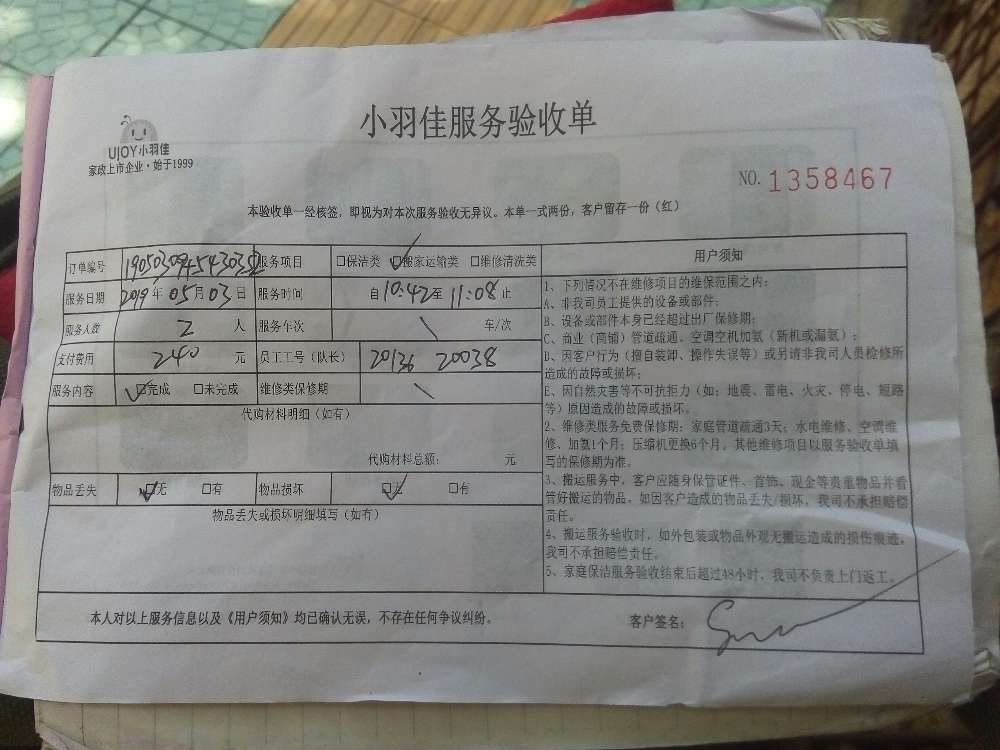 小羽佳服务验收单
UJOY小羽佳
家政上市企业·始于1999
NO. 1358467
本验收单一经核签，即视为对本次服务验收无异议。本单一式两份，客户留存一份（红）
订单编号 服务项目 □保洁类 □搬家运输类 □维修清洗类
服务日期 2019年05月03日 服务时间 自10:42至11:08止
服务人数 2 人 服务车次 \ 车/次
支付费用 240 元 员工工号（队长） 20136 20038
服务内容 ☑完成 □未完成 维修类保修期 \
代购材料明细（如有）
代购材料总额： 元
物品丢失 ☑无 □有 物品损坏 ☑无 □有
物品丢失或损坏明细填写（如有）
用户须知
1、下列情况不在维修项目的维保范围之内：
A、非我司员工提供的设备或部件；
B、设备或部件本身已经超过出厂保修期；
C、商业（商铺）管道疏通、空调空机加氨（新机或漏氨）；
D、因客户行为（擅自装卸、操作失误等）或另请非我司人员检修所
造成的故障或损坏；
E、因自然灾害等不可抗拒力（如：地震、雷电、火灾、停电、短路
等）原因造成的故障或损坏。
2、维修类服务免费保修期：家庭管道疏通3天；水电维修、空调维
修、加氨1个月；压缩机更换6个月，其他维修项目以服务验收单填
写的保修期为准。
3、搬运服务中，客户应随身保管证件、首饰、现金等贵重物品并看
管好搬运的物品。如因客户造成的物品丢失/损坏，我司不承担赔偿
责任。
4、搬运服务验收时，如外包装或物品外观无搬运造成的损伤痕迹，
我司不承担赔偿责任。
5、家庭保洁服务验收结束后超过48小时，我司不负责上门返工。
本人对以上服务信息以及《用户须知》均已确认无误，不存在任何争议纠纷。 客户签名：